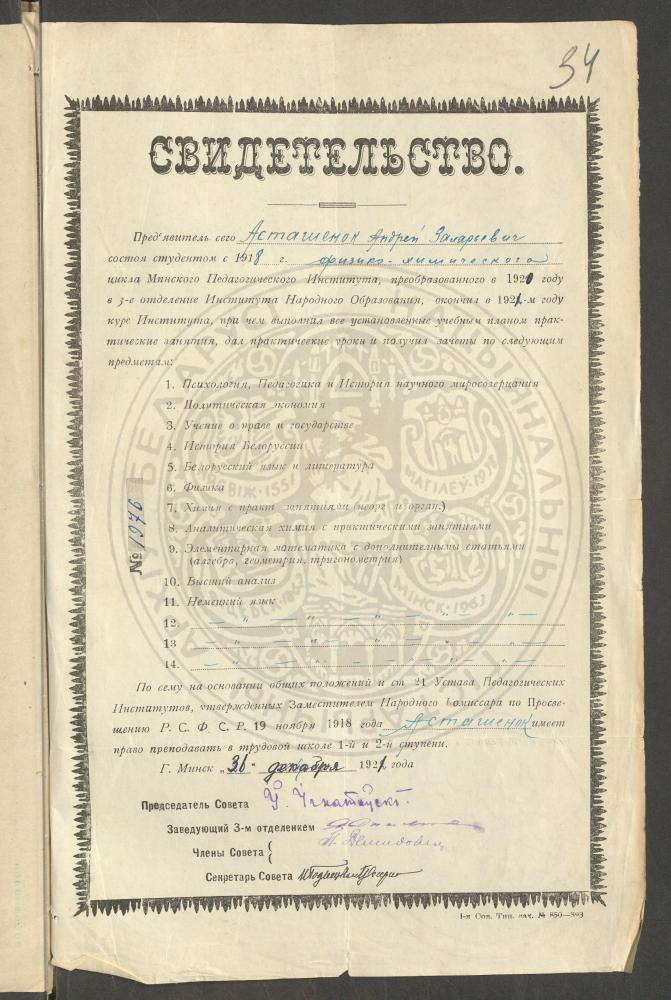 34
СВИДЕТЕЛЬСТВО.
Пред'явитель сего Асташенок Андрей Захарьевич
состоя студентом с 1918 г. физико-химического
цикла Минского Педагогического Института, преобразованного в 1920 году
в 3-е отделение Института Народного Образования, окончил в 1921-м году
курс Института, при чем выполнил все установленные учебным планом прак-
тические занятия, дал практические уроки и получил зачеты по следующим
предметам:
1. Психология, Педагогика и История научного миросозерцания
2. Политическая экономия
3. Учение о праве и государстве
4. История Белоруссии
5. Белорусский язык и литература
6. Физика
7. Химия с практ занятиями (неорг и орган.)
8. Аналитическая химия с практическими занятиями
9. Элементарная математика с дополнительными статьями
(алгебра, геометрия, тригонометрия)
10. Высший анализ
11. Немецкий язык
12.
13
14.
№ 1976
По сему на основании общих положений и ст 21 Устава Педагогических
Институтов, утвержденных Заместителем Народного Комиссара по Просве-
щению Р. С. Ф. С. Р. 19 ноября 1918 года Асташенок имеет
право преподавать в трудовой школе 1-й и 2-й ступени.
Г. Минск „36" декабря 1921 года
Председатель Совета У. Ігнатоўскі
Заведующий 3-м отделением
Члены Совета
Секретарь Совета
1-я Сов. Тип. зак. № 850—393